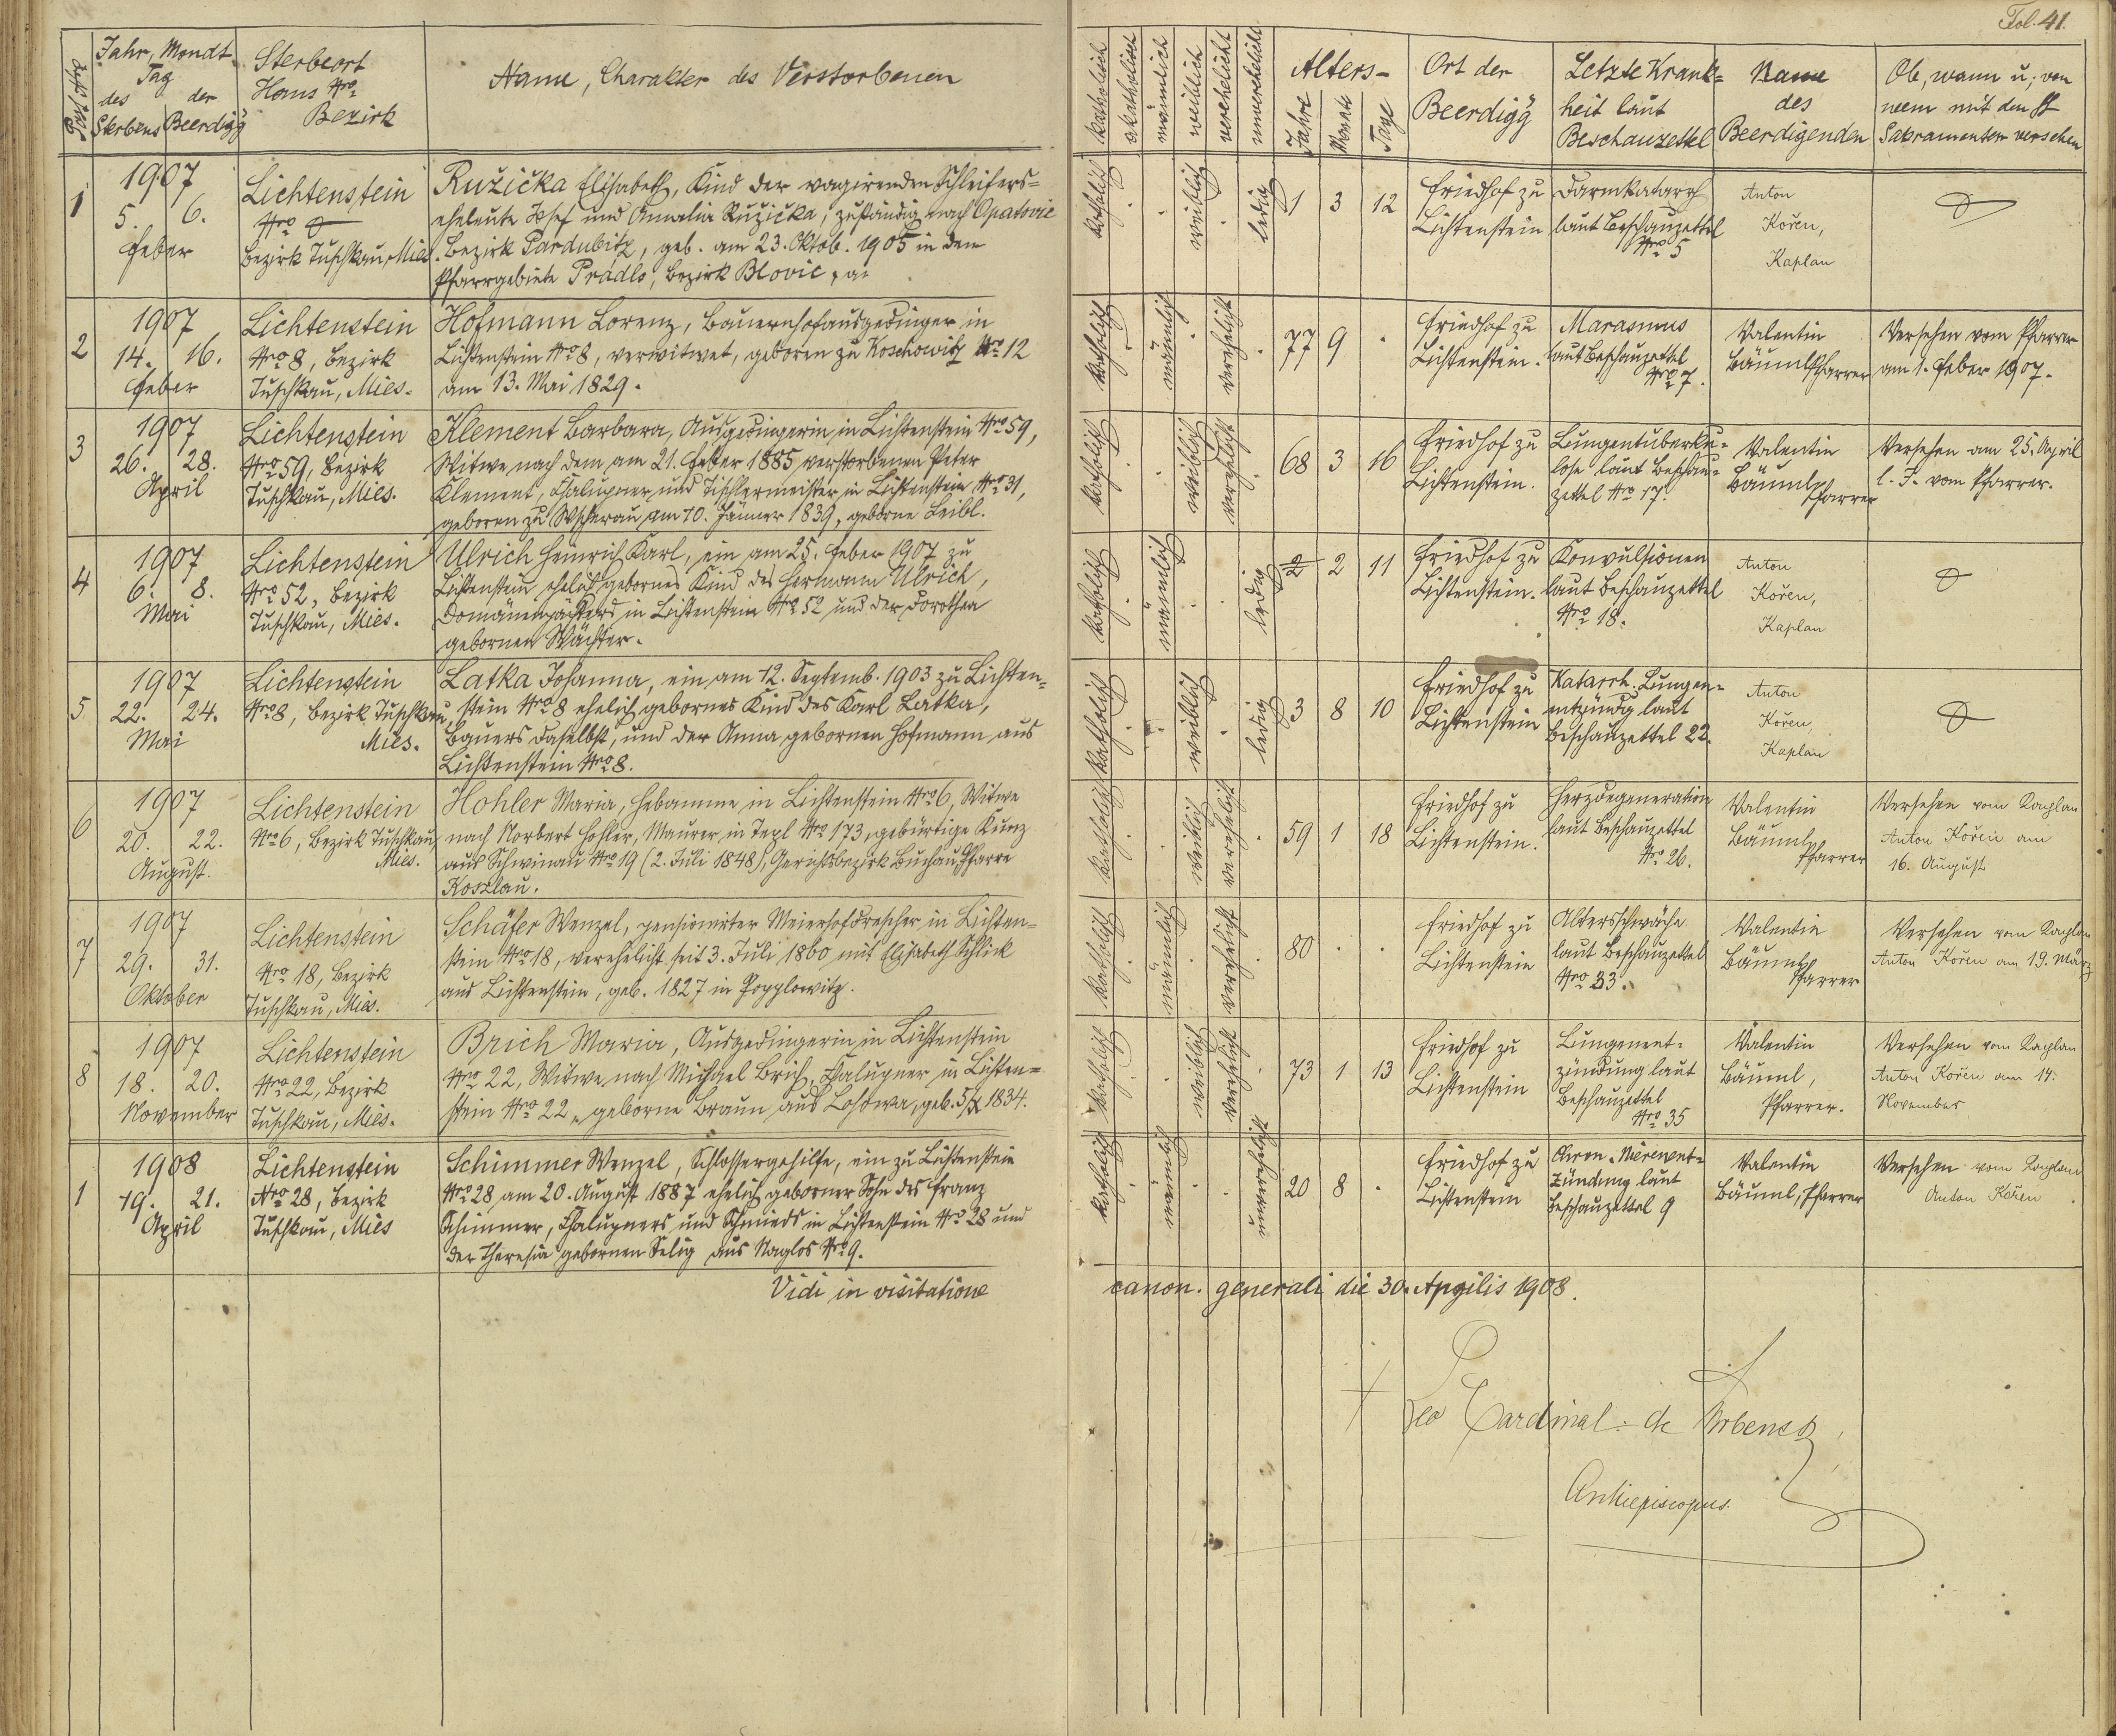 Fol. 41.
Post Nro
Jahr, Mondt
Tag
des der
Sterbens Beerdigg
Sterbeort
Haus Nro
Bezirk
Name, Charakter des Verstorbenen
katholisch
akatholisch
männlich
weiblich
verehelicht
unverehelicht
Alters-
Jahre
Monate
Tage
Ort der
Beerdigg
Letzte Krank=
heit laut
Beschauzettel
Name
des
Beerdigenden
Ob, wann u. von
wem mit den St
Sakramenten versehen
1
1907
5. 6.
Feber
Lichtenstein
Nro 0
Bezirk Tuschkau, Mies.
Ružička Elisabeth, Kind der vagirenden Schleifers=
eheleute Josef und Amalia Ružička, zuständig nach Opatovic
Bezirk Pardubitz, geb. am 23. Oktob. 1905 in dem
Pfarrgebiete Prádlo, Bezirk Blovic
katholisch
weiblich
ledig
1 3 12
Friedhof zu
Lichtenstein
Darmkatarrh
laut Beschauzettel
Nro 5
Anton
Kořen,
Kaplan
2
1907
14. 16.
Feber
Lichtenstein
Nro 8, Bezirk
Tuschkau, Mies.
Hofmann Lorenz, Bauernhofausgedinger in
Lichtenstein Nro 8, verwitwet, geboren zu Koschowitz Nro 12
am 13. Mai 1829.
katholisch
männlich
verehelicht
77 9 .
Friedhof zu
Lichtenstein.
Marasmus
laut Beschauzettel
Nro 7.
Valentin
Bäuml Pfarrer
Versehen vom Pfarrer
am 1. Feber 1907.
3
1907
26. 28.
April
Lichtenstein
Nro 59, Bezirk
Tuschkau, Mies.
Klement Barbara, Ausgedingerin in Lichtenstein Nro 59,
Witwe nach dem am 21. Feber 1885 verstorbenen Peter
Klement, Chalupner und Tischlermeister in Lichtenstein Nro 31,
geboren zu Wscherau am 10. Jänner 1839, geborne Leibl.
katholisch
weiblich
verehelicht
68 3 16
Friedhof zu
Lichtenstein.
Lungentuberku=
lose laut Beschau=
zettel Nro 17.
Valentin
Bäuml
Pfarrer
Versehen am 25. April
l. J. vom Pfarrer.
4
1907
6. 8.
Mai
Lichtenstein
Nro 52, Bezirk
Tuschkau, Mies.
Ulrich Heinrich Karl, ein am 25. Feber 1907 zu
Lichtenstein ehelich gebornes Kind des Hermann Ulrich,
Domänenpächters in Lichtenstein Nro 52 und der Dorothea
gebornen Wächter.
katholisch
männlich
ledig
2 2 11
Friedhof zu
Lichtenstein.
Konvulsionen
laut Beschauzettel
Nro 18.
Anton
Kořen,
Kaplan
5
1907
22. 24.
Mai
Lichtenstein
Nro 8, Bezirk Tuschkau,
Mies.
Latka Johanna, ein am 12. Septemb. 1903 zu Lichten=
stein Nro 8 ehelich gebornes Kind des Karl Latka,
Bauers daselbst, und der Anna gebornen Hofmann aus
Lichtenstein Nro 8.
katholisch
weiblich
ledig
3 8 10
Friedhof zu
Lichtenstein
Katarrh. Lungen=
entzündg laut
Beschauzettel 22.
Anton
Kořen,
Kaplan
6
1907
20. 22.
August.
Lichtenstein
Nro 6, Bezirk Tuschkau,
Mies.
Hohler Maria, Hebamme in Lichtenstein Nro 6, Witwe
nach Norbert Hohler, Maurer in Tepl Nro 173, gebürtige Kunz
aus Schwinau Nro 19 (2. Juli 1848), Gerichtsbezirk Buchau, Pfarre
Koslau.
katholisch
weiblich
verehelicht
59 1 18
Friedhof zu
Lichtenstein.
Herzdegeneration
laut Beschauzettel
Nro 26.
Valentin
Bäuml
Pfarrer
Versehen vom Kaplan
Anton Kořen am
16. August
7
1907
29. 31.
Oktober
Lichtenstein
Nro 18, Bezirk
Tuschkau, Mies.
Schäfer Wenzel, pensionirter Meierhofdrescher in Lichten=
stein Nro 18, verehelicht seit 3. Juli 1860 mit Elisabeth Schlick
aus Lichtenstein, geb. 1827 in Popplowitz.
katholisch
männlich
verehelicht
80 . .
Friedhof zu
Lichtenstein
Altersschwäche
laut Beschauzettel
Nro 33.
Valentin
Bäuml
Pfarrer
Versehen vom Kaplan
Anton Kořen am 19. März
8
1907
18. 20.
November
Lichtenstein
Nro 22, Bezirk
Tuschkau, Mies.
Brich Maria, Ausgedingerin in Lichtenstein
Nro 22, Witwe nach Michael Brich, Chalupner in Lichten=
stein Nro 22, geborne Braun aus Lohowa, geb. 5/X 1834.
katholisch
weiblich
verehelicht
73 1 13
Friedhof zu
Lichtenstein
Lungenent=
zündung laut
Beschauzettel
Nro 35
Valentin
Bäuml,
Pfarrer.
Versehen vom Kaplan
Anton Kořen am 14.
November
1
1908
19. 21.
April
Lichtenstein
Nro 28, Bezirk
Tuschkau, Mies
Schimmer Wenzel, Schlossergehilfe, ein zu Lichtenstein
Nro 28 am 20. August 1887 ehelich geborner Sohn des Franz
Schimmer, Chalupners und Schmieds in Lichtenstein Nro 28 und
der Theresia gebornen Selig aus Naglos Nro 9.
katholisch
männlich
unverehelicht
20 8 .
Friedhof zu
Lichtenstein
Chron. Nierenent=
zündung laut
Beschauzettel 9
Valentin
Bäuml, Pfarrer
Versehen vom Kaplan
Anton Kořen
Vidi in visitatione canon. generali die 30. Aprilis 1908.
Leo Cardinal de Skrbensky
Archiepiscopus.